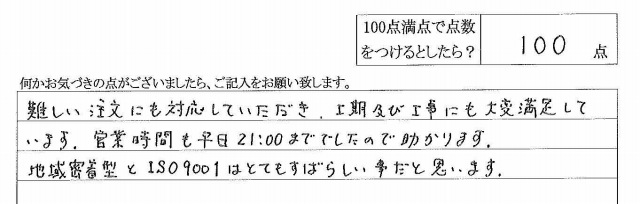 100点満点で点数
をつけるとしたら? 100 点
何かお気づきの点がございましたら、ご記入をお願い致します。
難しい注文にも対応していただき、工期及び工事にも大変満足して
います。営業時間も平日21:00まででしたので助かります。
地域密着型とISO9001はとてもすばらしい事だと思います。